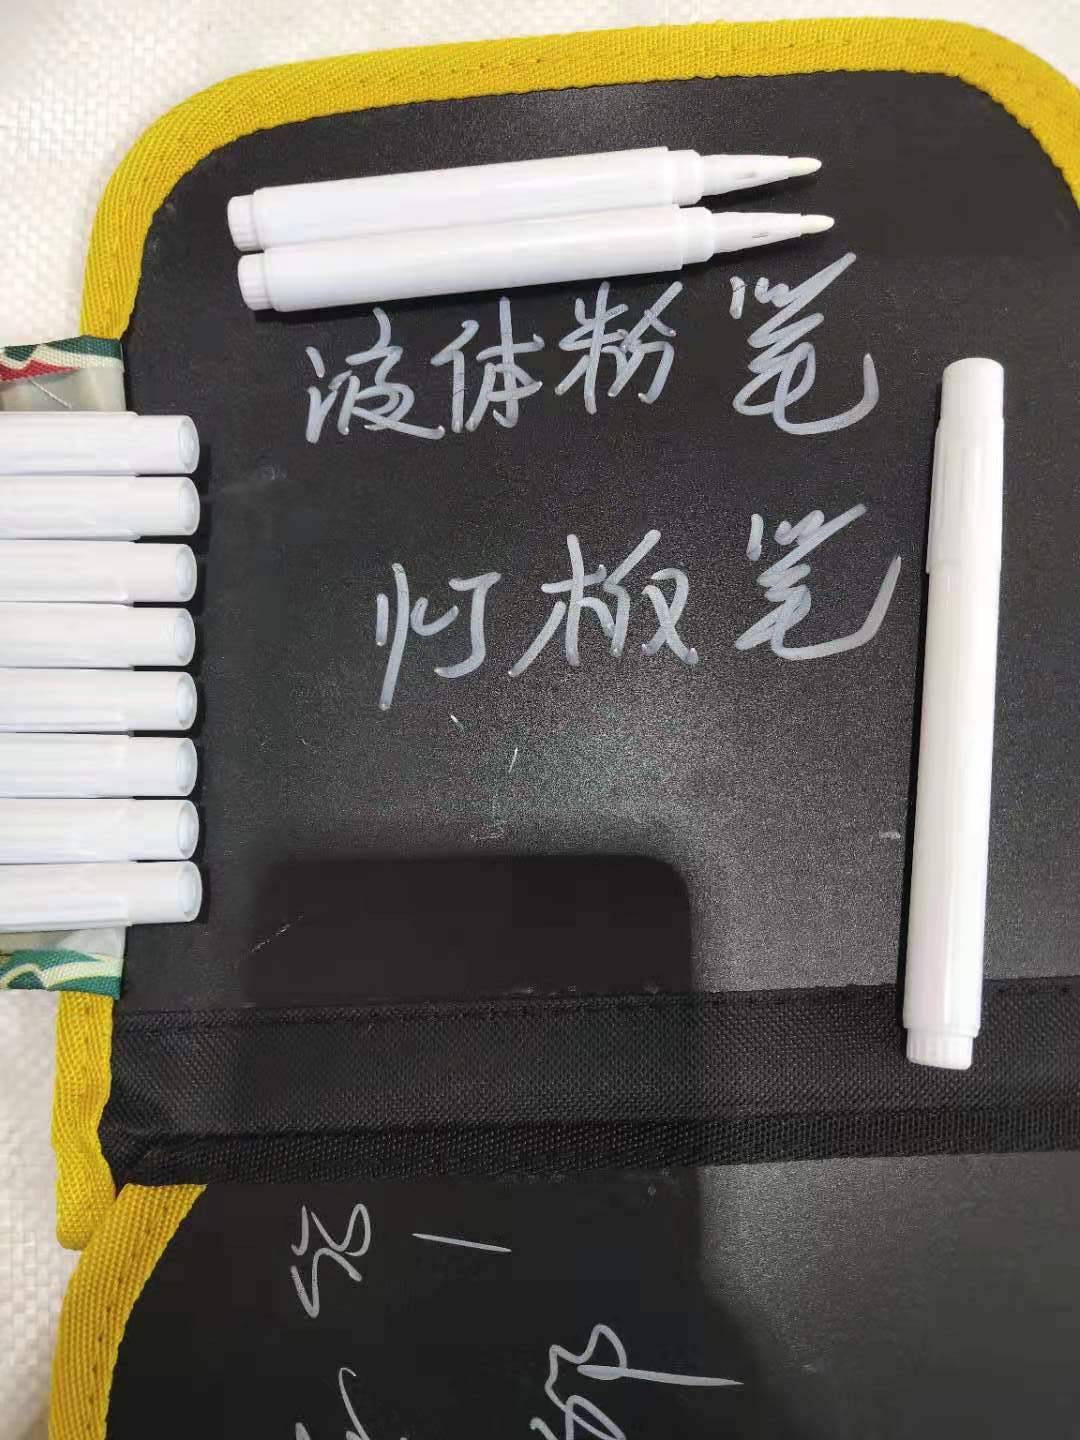 液体粉笔
灯板笔